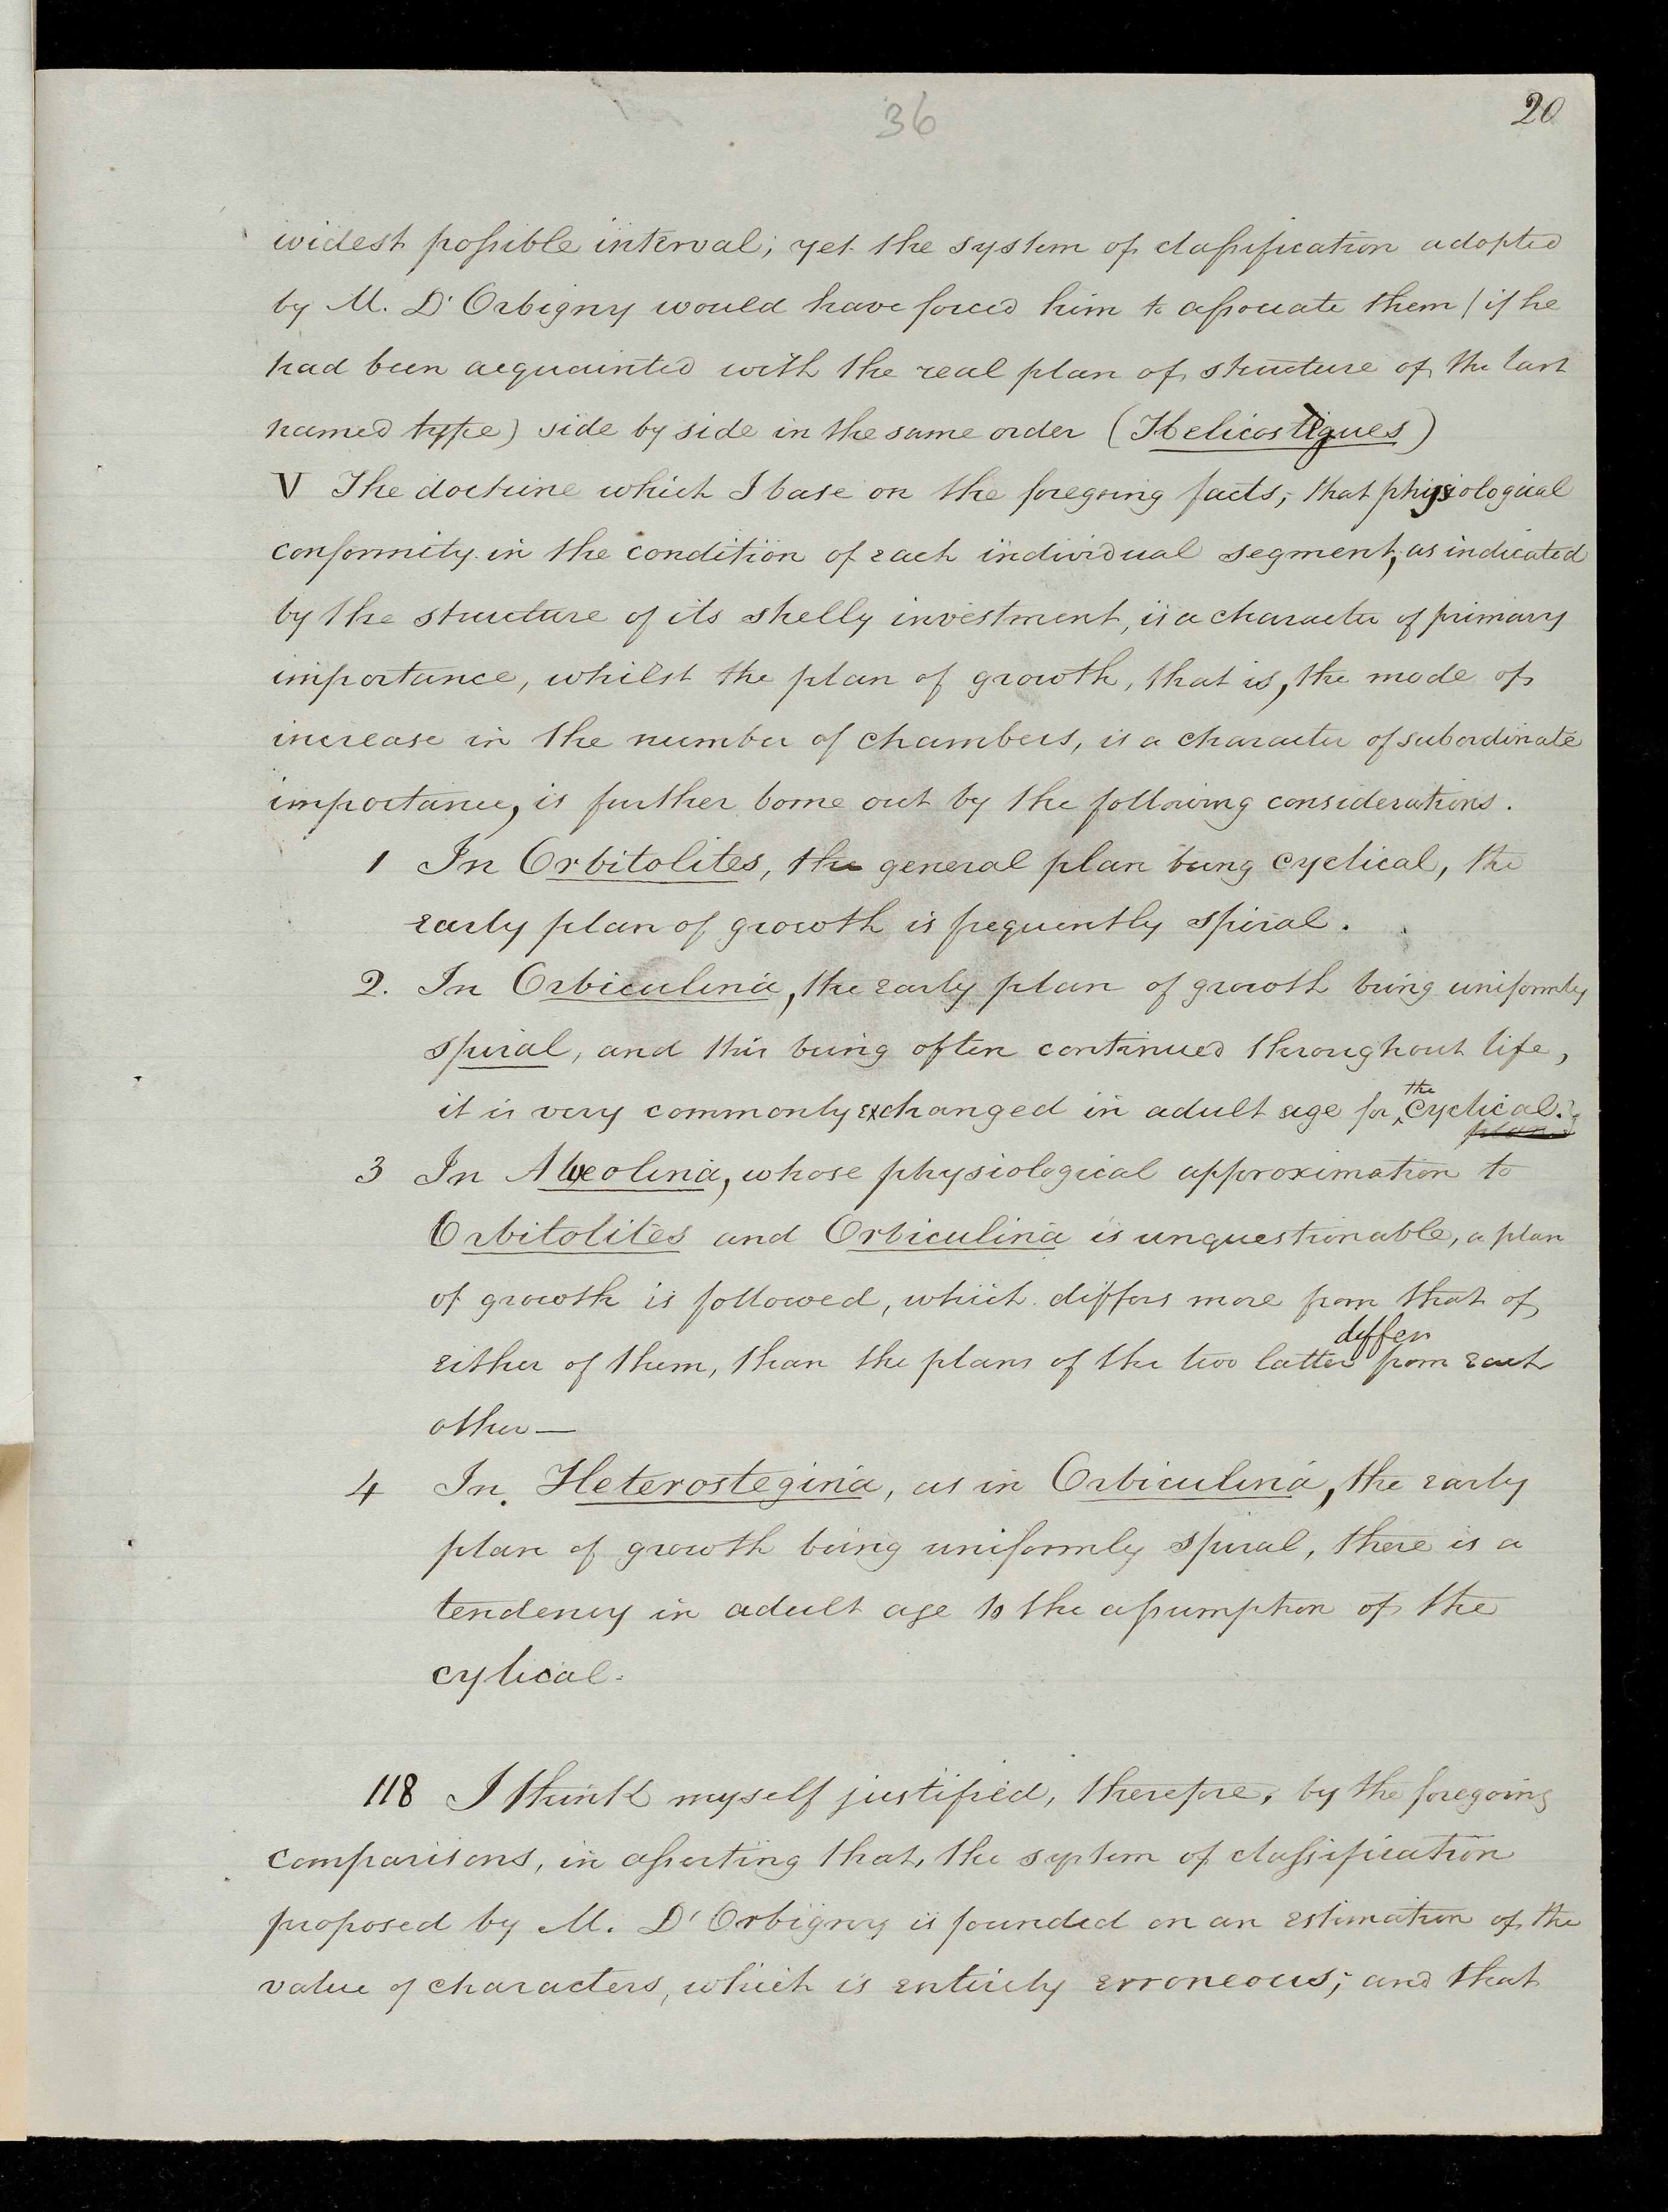 36
20
widest possible interval; yet the system of classification adopted
by M. D'Orbigny would have forced him to associate them (if he
had been acquainted with the real plan of structure of the last
named type) side by side in the same order (Helicostègues)
V The doctrine which I base on the foregoing facts; that physiological
conformity in the condition of each individual segment, as indicated
by the structure of its shelly investment, is a character of primary
importance, whilst the plan of growth, that is, the mode of
increase in the number of chambers, is a character of subordinate
importance, is further borne out by the following considerations.
1 In Orbitolites, the general plan being cyclical, the
early plan of growth is frequently spiral.
2. In Orbiculina, the early plan of growth being uniformly
spiral, and this being often continued throughout life,
it is very commonly exchanged in adult age for the cyclical.
plan
3 In Alveolina, whose physiological approximation to
Orbitolites and Orbiculina is unquestionable, a plan
of growth is followed, which differs more from that of
either of them, than the plans of the two latter differ from each
other—
4 In Heterostegina, as in Orbiculina, the early
plan of growth being uniformly spiral, there is a
tendency in adult age to the assumption of the
cylical.
118 I think myself justified, therefore, by the foregoing
comparisons, in asserting that, the system of classification
proposed by M. D'Orbigny is founded on an estimation of the
value of characters, which is entirely erroneous; and that